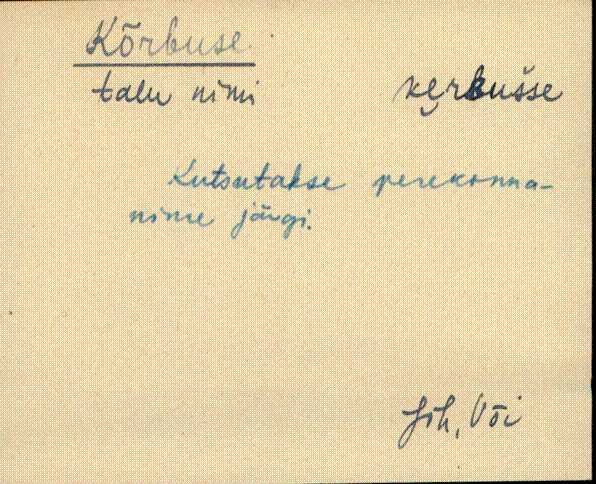 Kõrbuse
talu nimi ke̮rʙušse
Kutsutakse perekonna-
nime järgi.
Jõh, Või